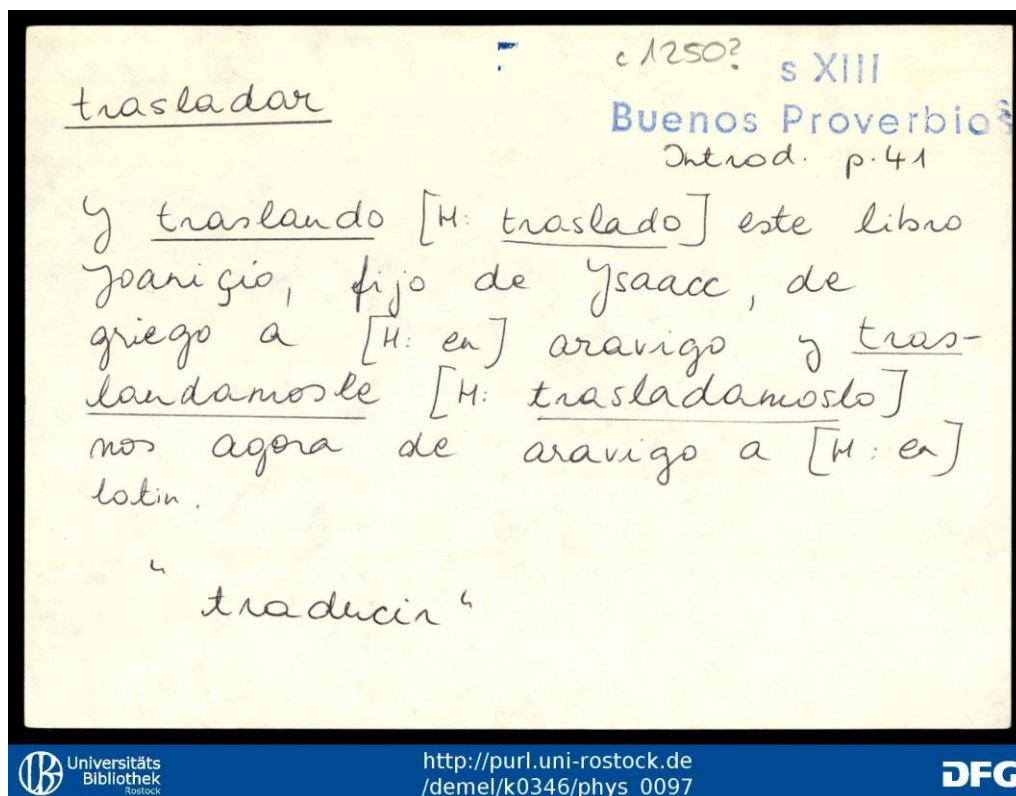 c 1250? s XIII
trasladar
Buenos Proverbios
Introd. p. 41
Y traslando [H: traslado] este libro
Joaniçio, fijo de Ysaacc, de
griego a [H: en] aravigo y tras-
landamosle [H: trasladamoslo]
nos agora de aravigo a [H: en]
latin.
"traducir"
Universitäts
Bibliothek
Rostock
http://purl.uni-rostock.de
/demel/k0346/phys_0097
DFG